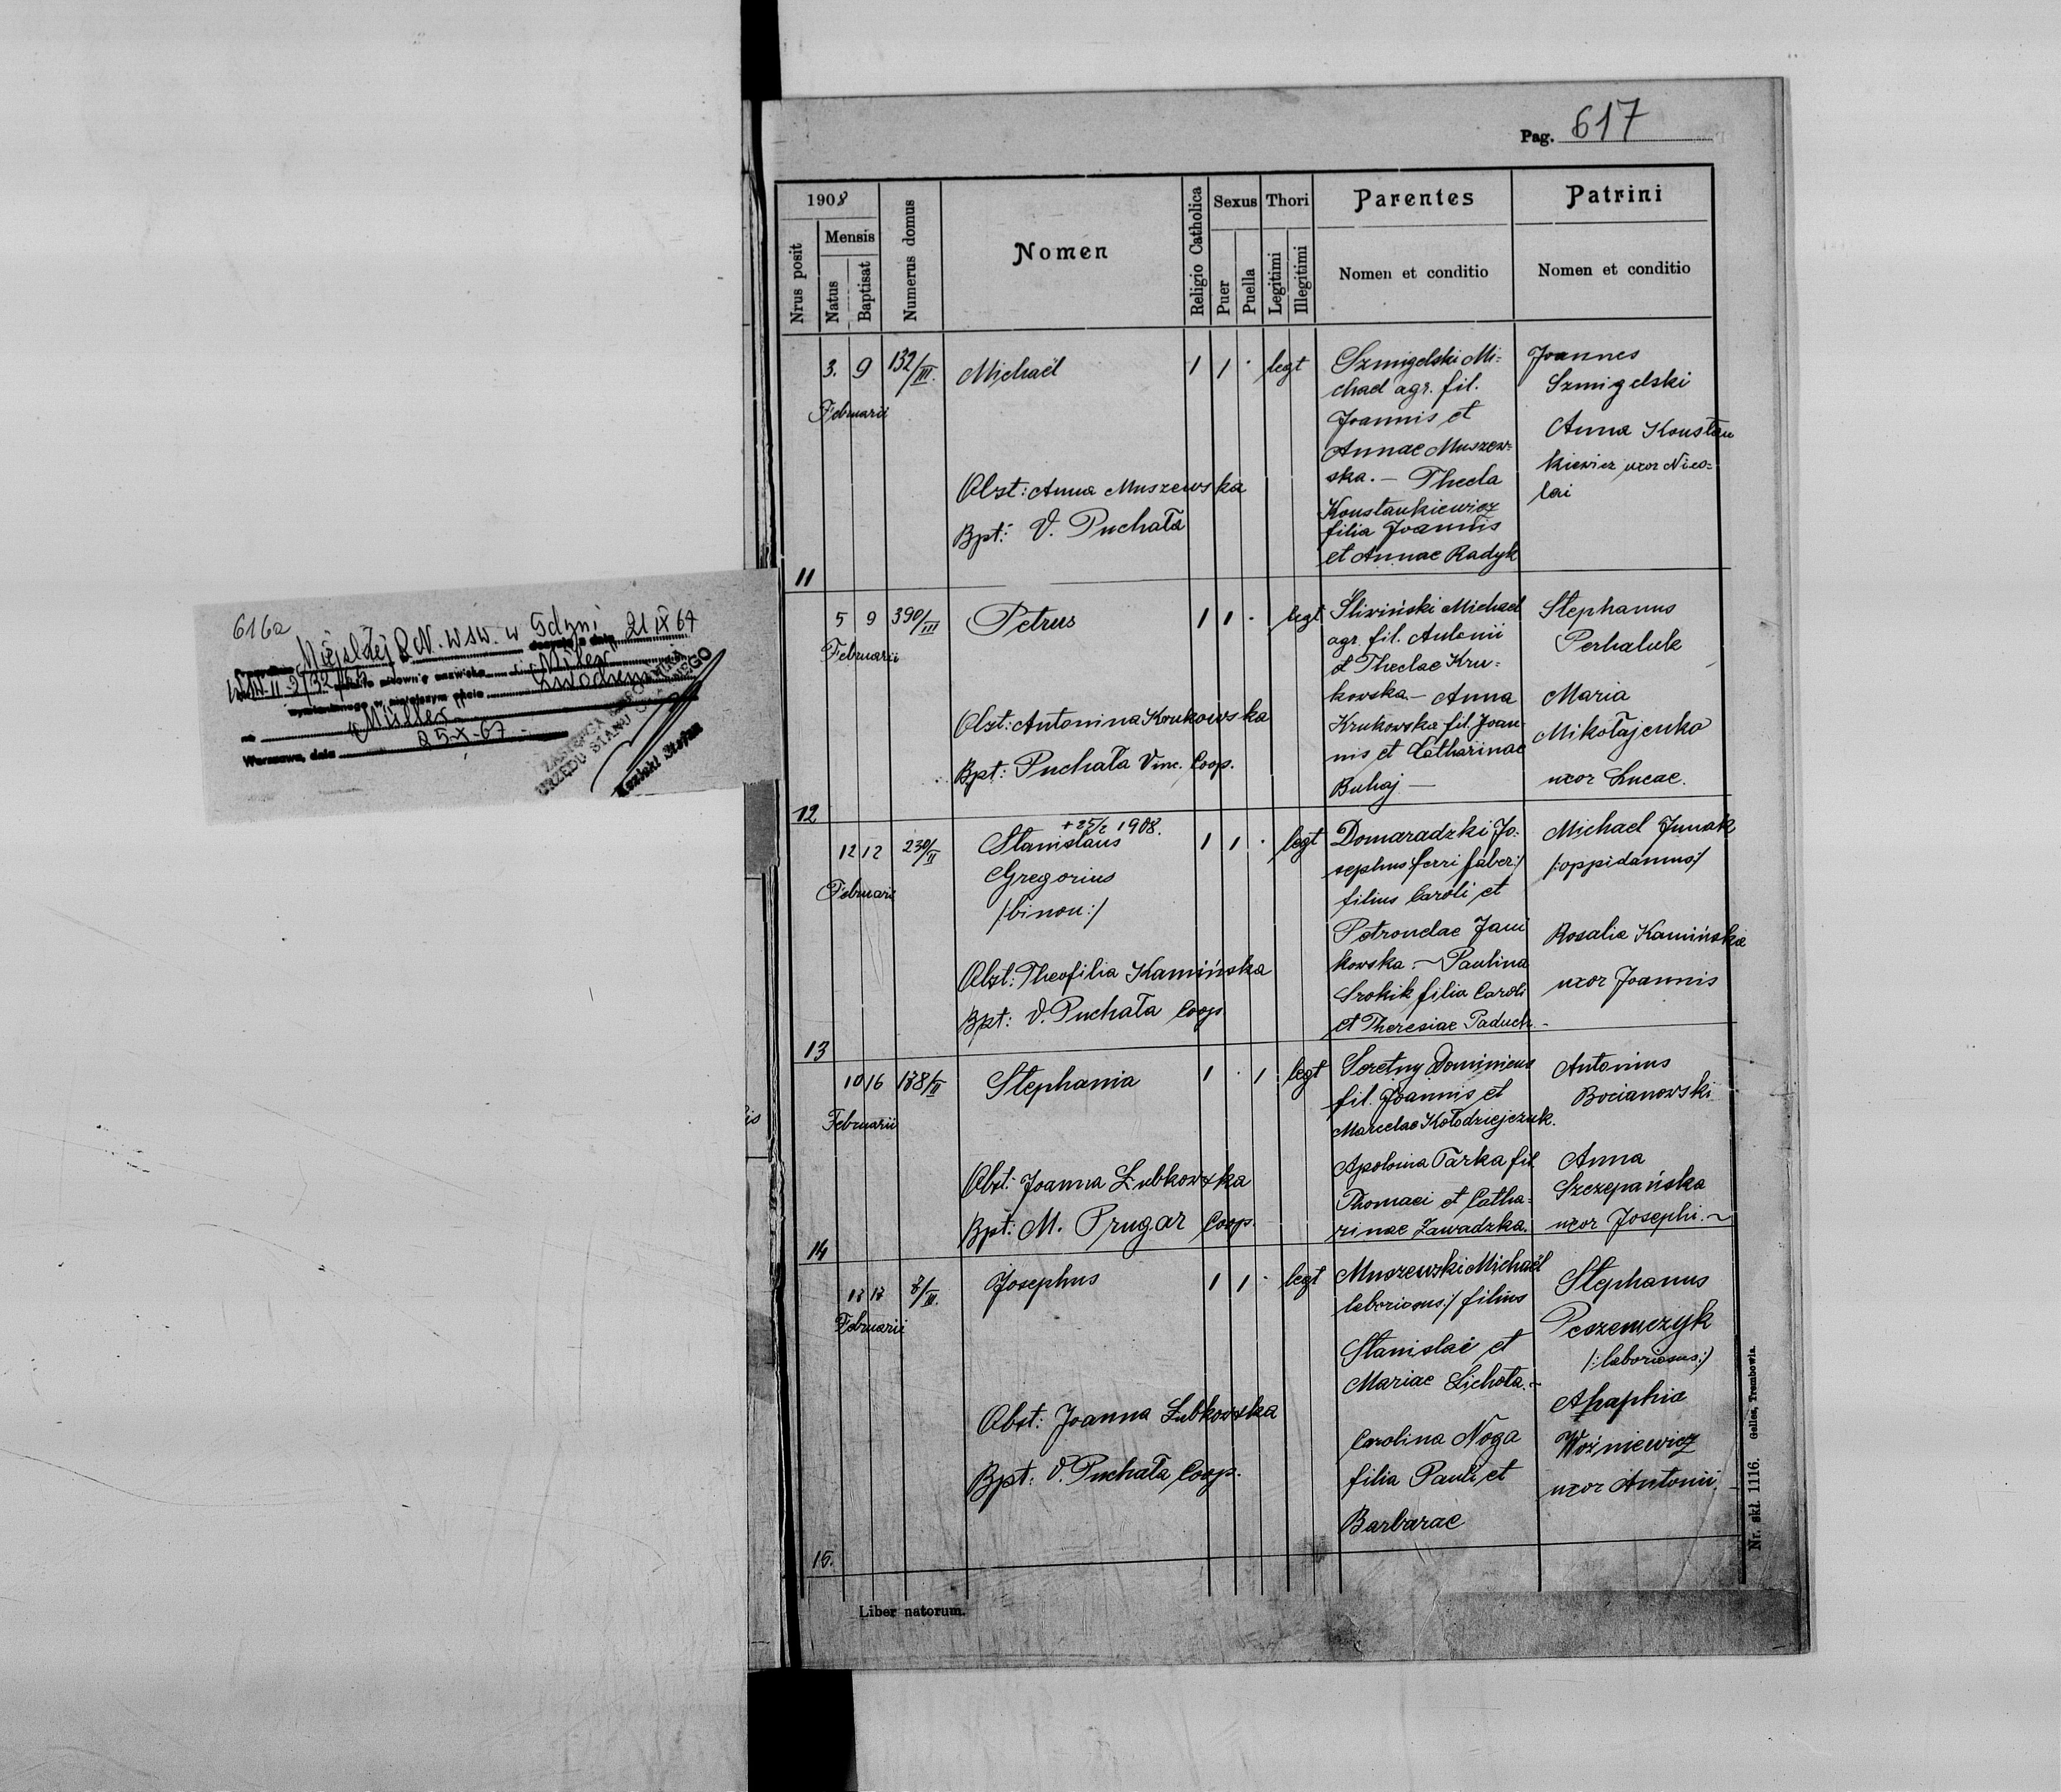 Pag. 617
1908
Nrus posit
Mensis
Natus
Baptisat
Numerus domus
Nomen
Religio Catholica
Sexus
Puer
Puella
Thori
Legitimi
Illegitimi
Parentes
Nomen et conditio
Patrini
Nomen et conditio
11
3. 9 132/III.
Februarii
Michaël
Obst: Anna Muszewska
Bpt: V. Puchała
1 1 · legt
Szmigelski Mi=
chael agr. fil.
Joannis et
Annae Muszew=
ska. — Thecla
Konstankiewicz
filia Joannis
et Annae Radyk
Joannes
Szmigelski
Anna Konstan
kiewicz uxor Nico=
lai
12
5 9 390/III
Februarii
Petrus
Obst: Antonina Krukowska
Bpt: Puchała Vinc. Coop.
1 1 · legt
Śliwiński Michael
agr. fil. Antonii
et Theclae Kru=
kowska — Anna
Krukowska fil. Joan
nis et Catharinae
Buhaj —
Stephanus
Perhaluk
Maria
Mikołajenko
uxor Lucae.
13
12 12 230/II
Februarii
+ 25/2 1908.
Stanislaus
Gregorius
/binon:/
Obst: Theofilia Kamińska
Bpt: V. Puchała Coop
1 1 · legt
Domaradzki Jo=
sephus ferri faber:/
filius Caroli et
Petronelae Jani
kowska. — Paulina
Srokik filia Caroli
et Theresiae Paduch. -
Michael Junak
/:oppidanus:/
Rosalia Kamińska
uxor Joannis
14
10 16 138/II
Februarii
Stephania
Obst: Joanna Łubkowska
Bpt: M. Prugar Coop.
1 · 1 legt
Seretny Dominicus
fil. Joannis et
Marcelae Kołodziejczuk.
Apolonia Tarka fil
Thomaei et Catha=
rinae Zawadzka.
Antonius
Bocianowski
Anna
Szczepańska
uxor Josephi. ~
15.
Februarii
Josephus
Obst: Joanna Łubkowska
Bpt: V. Puchała Coop.
1 1 · legt
Muszewski Michaël
laboriosus:/ filius
Stanislai et
Mariae Lichota. ~
Carolina Noga
filia Pauli et
Barbarae
Stephanus
/:laboriosus:/
Ahaphia
Woźniewicz
uxor Antonii.
Liber natorum.
Nr. skł. 1116. Gelles, Trembowla.
616a
Miejskiej R.N. WSW. w Gdyni 21 IX 67
"Miler"
"Müller"
Warszawa, dnia 25-X-67-
ZASTĘPCA KIEROWNIKA
URZĘDU STANU CYWILNEGO